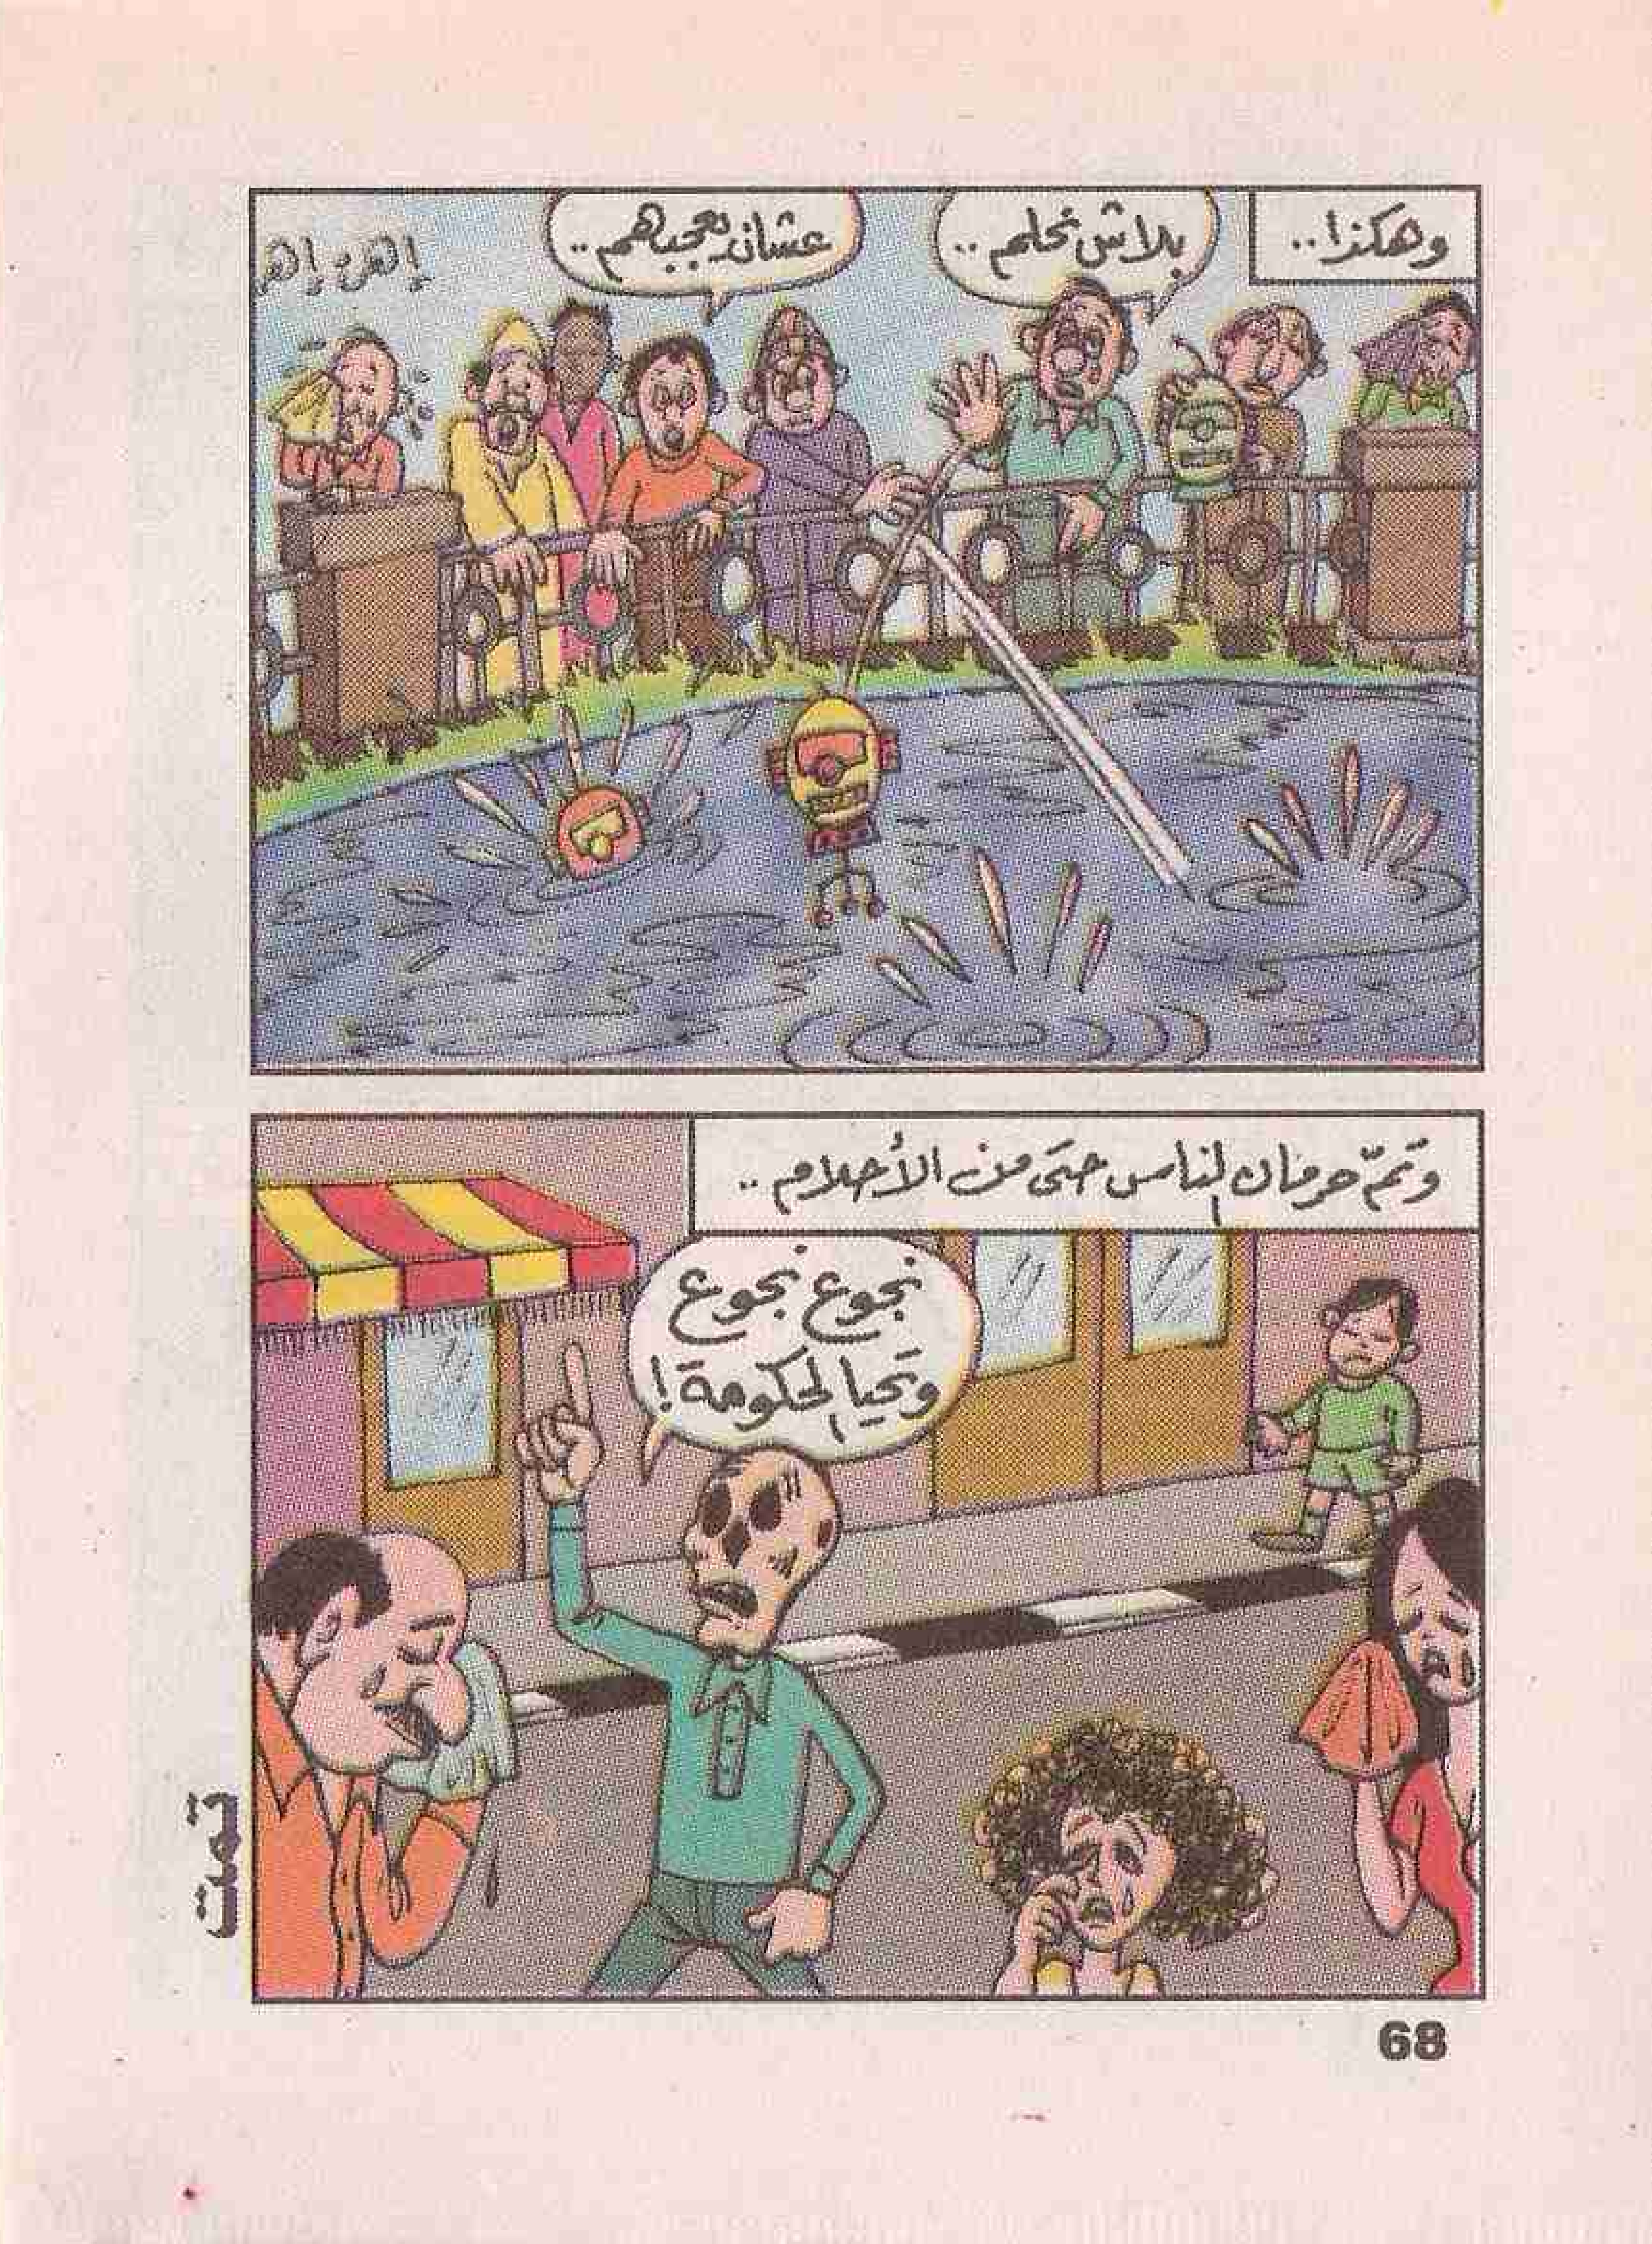 وهكذا..
بلاش نحلم..
عشان نعجبهم..
إهئ إهئ
وتمّ حرمان الناس حتى من الأحلام..
نجوع نجوع
وتحيا الحكومة!
تمت
68